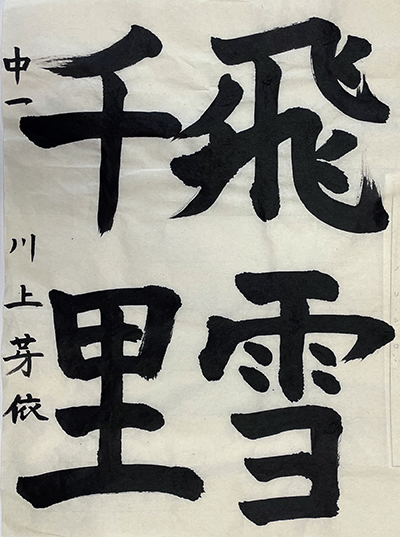 飛雪
千里
中一 川上芽依